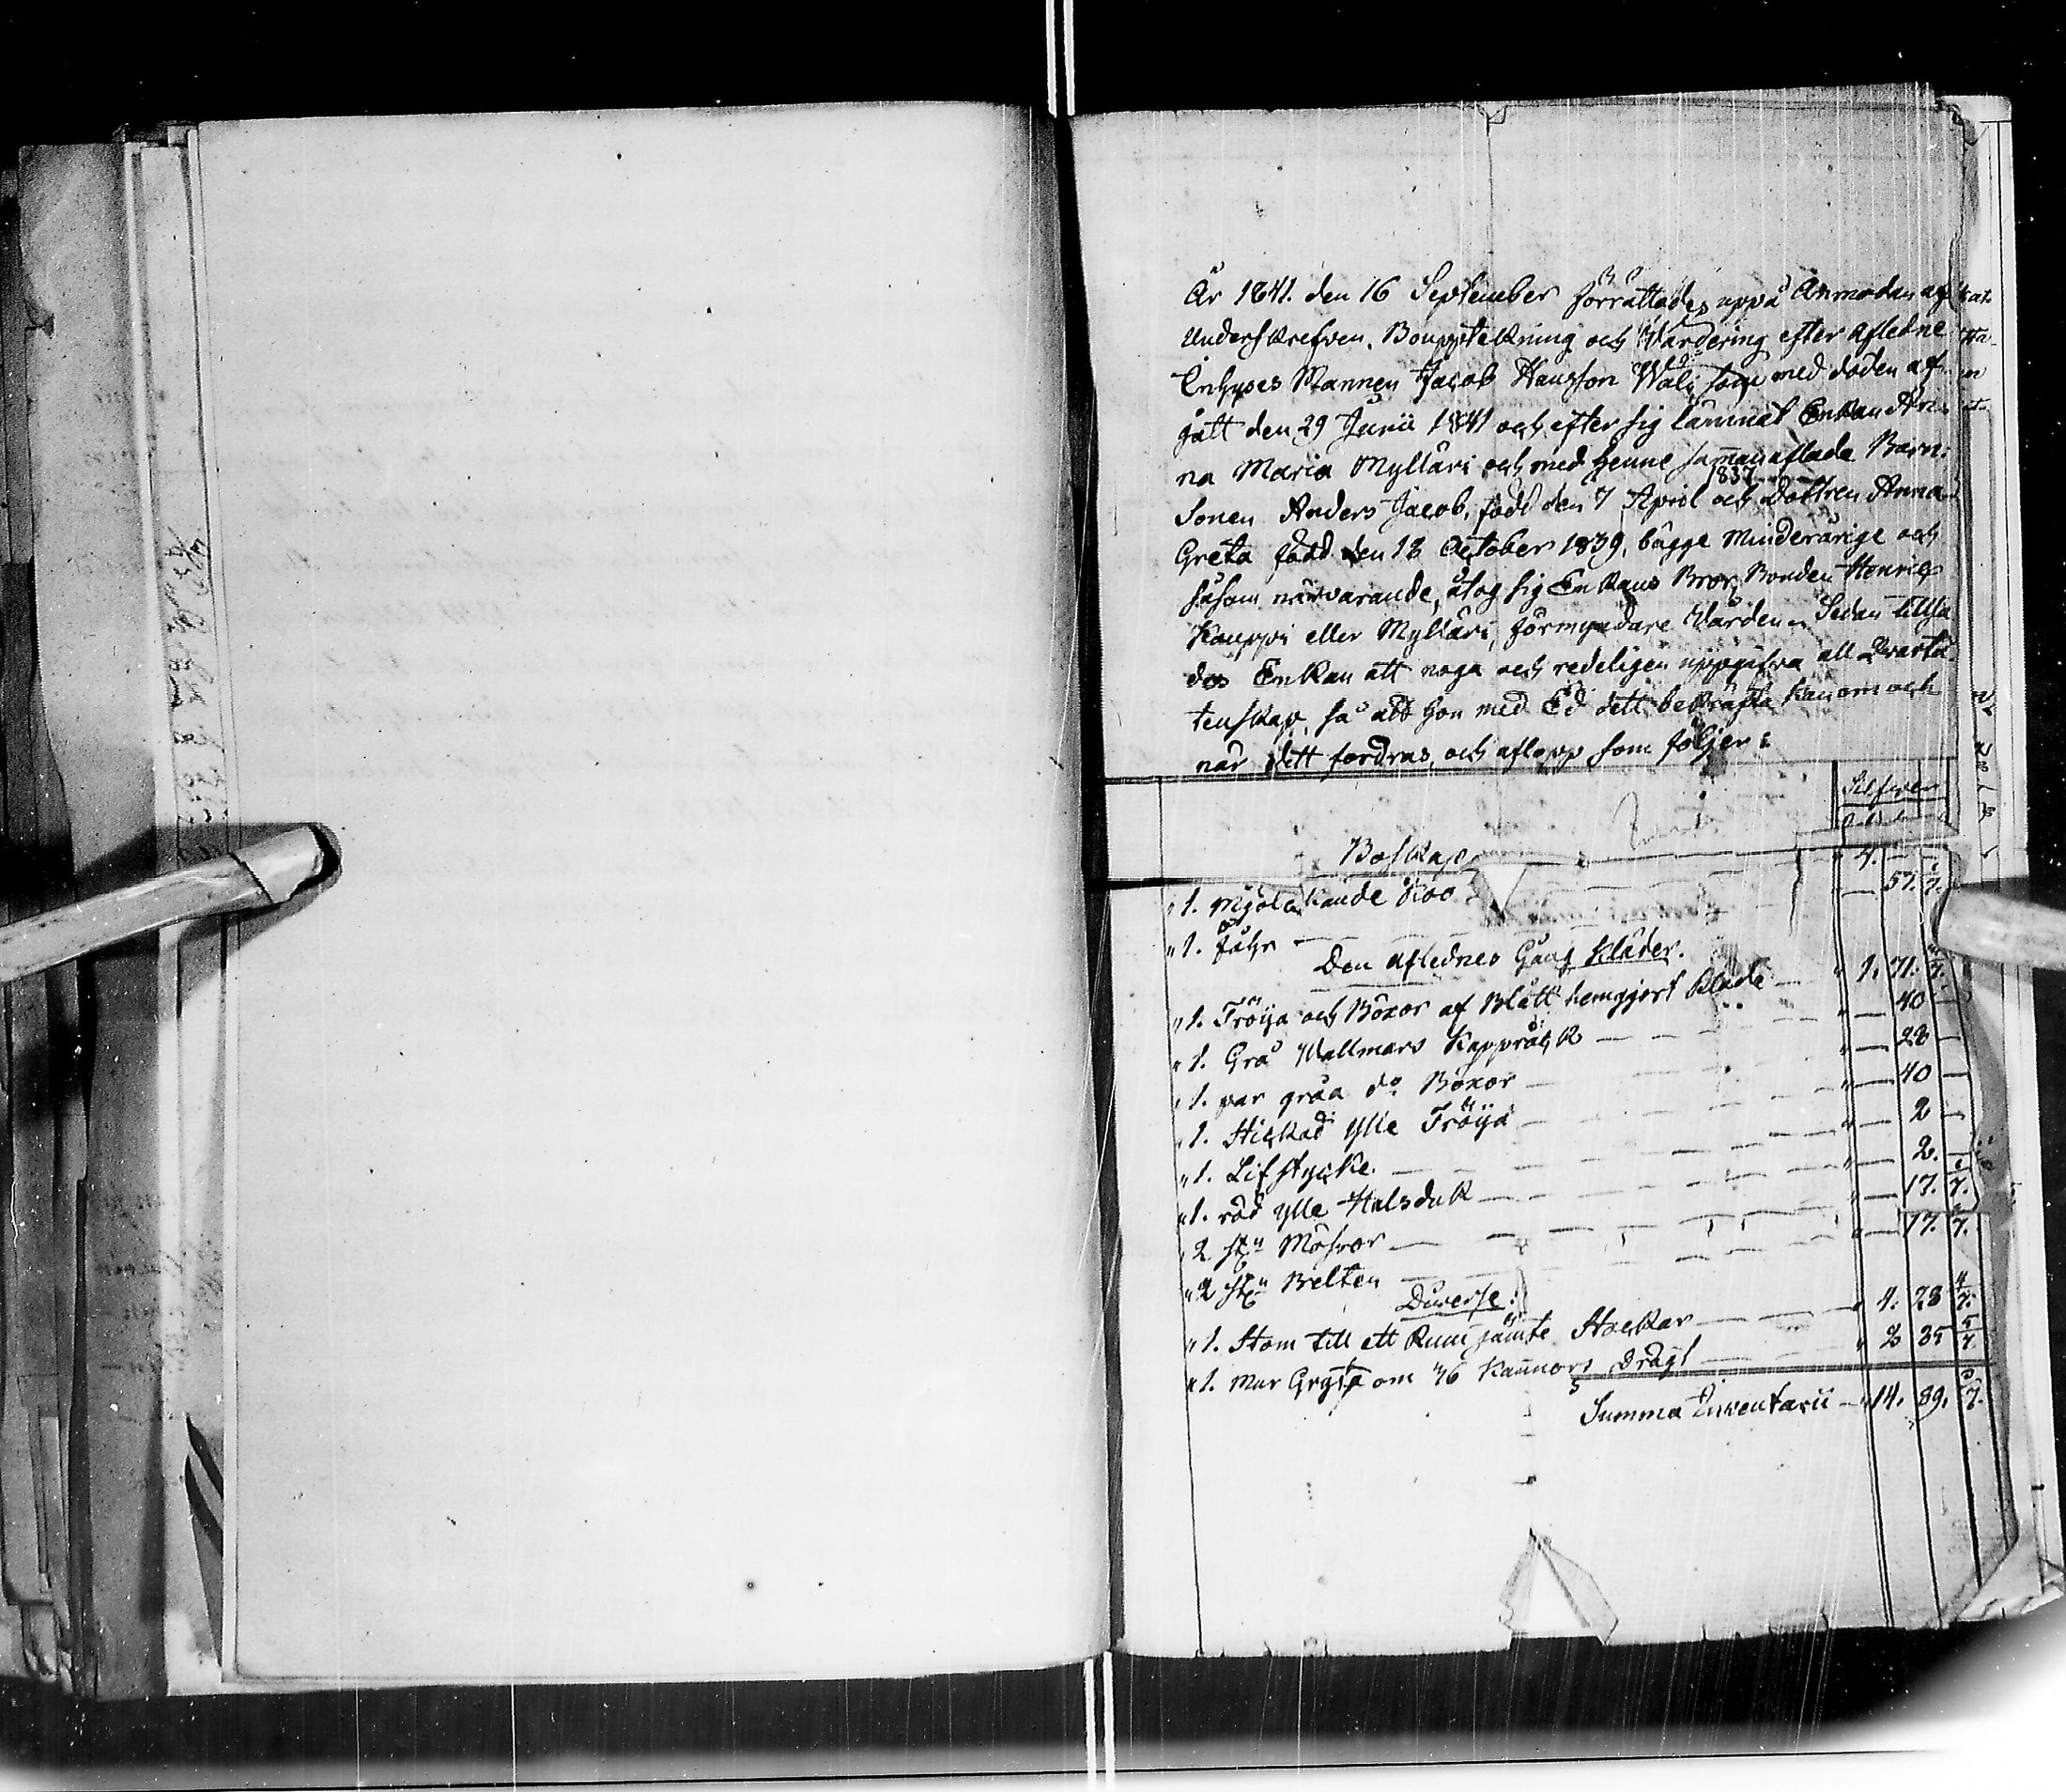 År 1841. den 16 September förrättades uppå Anmodan af
Underskrefven, Bouppteckning och Värdering efter Afledne
Inhyses Mannen Jacob Hansson Wäli, som med döden af-
gått den 29 Junii 1841 och efter sig lämnat Enkan An-
na Maria Mylläri och med henne sammanaflade Barn:
1837
Sonen Anders Jacob, född den 7 April och Dottren Anna
Greta född den 18 October 1839, bägge Minderårige och
såsom närvarande, åtog sig Enkans Bror, Bonden Henric
Kauppi eller Mylläri, förmyndare Vården. Sedan tillsa
des Enkan att noga och redeligen uppgifva all Qvarlå
tenskap, så att hon med Ed dett bekräfta kan om och
när dett fordras, och aflopp som följer:
Silfwer
Boskap
" 1. Mjölckande Koo " 4. — —
" 1. Fåhr — " — 57. 1/7.
Den aflednes Gång Kläder.
" 1. Tröija och Böxor af Blått hemgjort Kläde — " 1. 71. 3/7.
" 1. Grå Wallmars Kappråck — " — 40 —
" 1. par gråa do Böxor — " — 28 —
" 1. Stickad ylle Tröija — " — 40 —
" 1. Lifstycke. — " — 2 —
" 1. röd ylle Halsduk — " — 2. —
" 2 st: Mössor — " — 17. 1/7.
" 2 st: Belten — " — 17. 1/7.
Diverse:
" 1. Stom till ett Rum jämte Stockar — " 4. 28 4/7.
" 1. Mur Gryta om 16 Kannors Drägt — " 2 85 5/7.
Summa Inventarii — " 14. 89. 1/7.